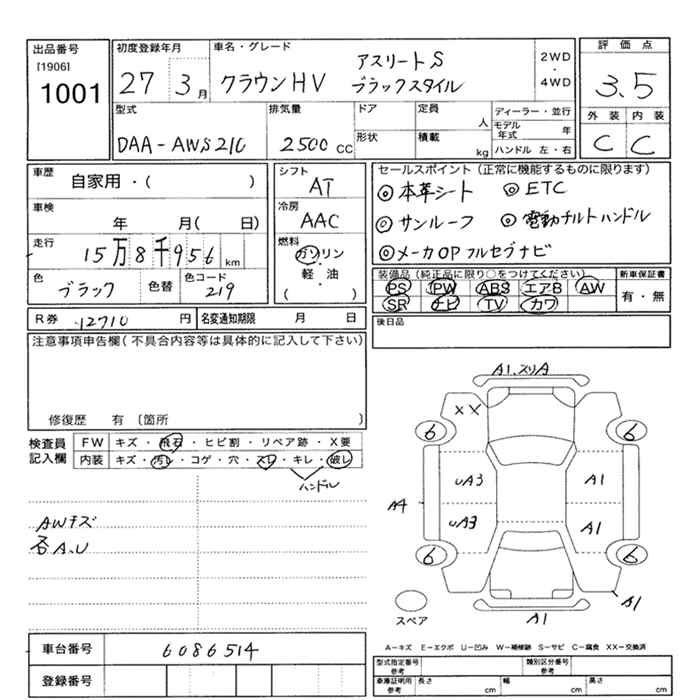 出品番号
[1906]
1001
初度登録年月
27 3月
車名・グレード
クラウンHV アスリートS
ブラックスタイル
2WD
・
4WD
評価点
3.5
外装 内装
C C
型式
DAA-AWS210
排気量
2500 CC
ドア
形状
定員
人
積載
kg
ディーラー・並行
モデル年式 年
ハンドル 左・右
車歴
自家用・( )
車検
年 月( 日)
走行
15万8千956 km
色
ブラック
色替
色コード
219
シフト
AT
冷房
AAC
燃料
ガソリン
・
軽・油
( )
セールスポイント(正常に機能するものに限ります)
◎本革シート ◎ETC
◎サンルーフ ◎電動チルトハンドル
◎メーカOPフルセグナビ
装備品(純正品に限り○をつけてください)
PS PW ABS エアB AW
SR ナビ TV カワ
新車保証書
有・無
R券 12710 円
名変通知期限 月 日
後日品
注意事項申告欄(不具合内容等は具体的に記入して下さい)
修復歴 有〔箇所
検査員記入欄
FW キズ・飛石・ヒビ割・リペア跡・X要
内装 キズ・汚れ・コゲ・穴・スレ・キレ・破レ
ハンドル
AWキズ
各A、U
A1、スリA
XX
6 6
UA3 A1
A4
UA3 A1
6 6
A1
A1
スペア
A-キズ E-エクボ U-凹み W-補修跡 S-サビ C-腐食 XX-交換済
車台番号
6086514
登録番号
型式指定番号 参考
類別区分番号 参考
車庫証明用 参考
長さ cm
幅 cm
高さ cm